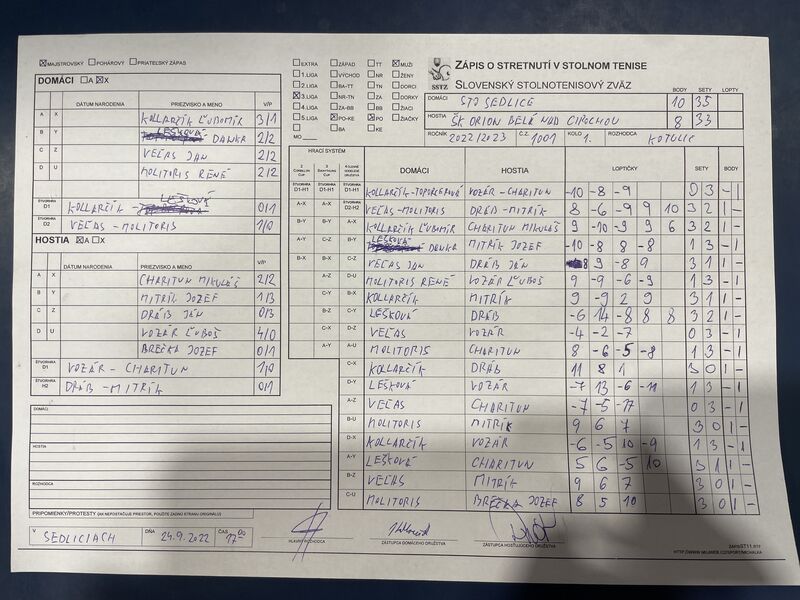 ☒ MAJSTROVSKÝ ☐ POHÁROVÝ ☐ PRIATEĽSKÝ ZÁPAS
DOMÁCI ☐ A ☒ X
DÁTUM NARODENIA PRIEZVISKO A MENO V/P
A X KOLLARČÍK ĽUBOMÍR 3/1
B Y LEŠKOVÁ DANKA 2/2
C Z VEĽAS JÁN 2/2
D U MOLITORIS RENÉ 2/2
ŠTVORHRA D1 KOLLARČÍK - LEŠKOVÁ 0/1
ŠTVORHRA D2 VEĽAS - MOLITORIS 1/0
HOSTIA ☒ A ☐ X
DÁTUM NARODENIA PRIEZVISKO A MENO V/P
A X CHARITUN MIKULÁŠ 2/2
B Y MITRÍK JOZEF 1/3
C Z DRÁB JÁN 0/3
D U VOZÁR ĽUBOŠ 4/0
BREČKA JOZEF 0/1
ŠTVORHRA D1 VOZÁR - CHARITUN 1/0
ŠTVORHRA H2 DRÁB - MITRÍK 0/1
DOMÁCI
HOSTIA
ROZHODCA
PRIPOMIENKY/PROTESTY (AK NEPOSTAČUJE PRIESTOR, POUŽITE ZADNÚ STRANU ORIGINÁLU)
V SEDLICIACH DŇA 24.9.2022 ČAS 17:00
☐ EXTRA ☐ ZÁPAD ☐ TT ☒ MUŽI
☐ 1.LIGA ☐ VÝCHOD ☐ NR ☐ ŽENY
☐ 2.LIGA ☐ BA-TT ☐ TN ☐ DORCI
☒ 3.LIGA ☐ NR-TN ☐ ZA ☐ DORKY
☐ 4.LIGA ☐ ZA-BB ☐ BB ☐ ŽIACI
☐ 5.LIGA ☒ PO-KE ☒ PO ☐ ŽIAČKY
☐ BA ☐ KE
MO
SSTZ
ZÁPIS O STRETNUTÍ V STOLNOM TENISE
SLOVENSKÝ STOLNOTENISOVÝ ZVÄZ
BODY SETY LOPTY
DOMÁCI STO SEDLICE 10 35
HOSTIA ŠK ORION BELÁ NAD CIROCHOU 8 33
ROČNÍK 2022/2023 Č.Z. 1001 KOLO 1. ROZHODCA KOTULIC
HRACÍ SYSTÉM
DOMÁCI HOSTIA LOPTIČKY SETY BODY
D1-H1 D1-H1 D1-H1 KOLLARČÍK-TOPORCEROVÁ VOZÁR-CHARITUN -10 -8 -9 0 3 - 1
A-X A-X D2-H2 VEĽAS-MOLITORIS DRÁB-MITRÍK 8 -6 -9 9 10 3 2 1 -
B-Y B-Y A-X KOLLARČÍK ĽUBOMÍR CHARITUN MIKULÁŠ 9 -10 -9 9 6 3 2 1 -
A-Y C-Z B-Y LEŠKOVÁ DANKA MITRÍK JOZEF -10 -8 8 -8 1 3 - 1
B-X B-X C-Z VEĽAS JÁN DRÁB JÁN 8 9 -8 9 3 1 1 -
A-Z D-U MOLITORIS RENÉ VOZÁR ĽUBOŠ 9 -9 -6 -9 1 3 - 1
C-Y B-X KOLLARČÍK MITRÍK 9 -9 2 9 3 1 1 -
B-Z C-Y LEŠKOVÁ DRÁB -6 14 -8 8 8 3 2 1 -
C-X D-Z VEĽAS VOZÁR -4 -2 -7 0 3 - 1
A-Y A-U MOLITORIS CHARITUN 8 -6 -5 -8 1 3 - 1
C-X KOLLARČÍK DRÁB 11 8 1 3 0 1 -
D-Y LEŠKOVÁ VOZÁR -7 13 -6 -11 1 3 - 1
A-Z VEĽAS CHARITUN -7 -5 -17 0 3 - 1
B-U MOLITORIS MITRÍK 9 6 7 3 0 1 -
D-X KOLLARČÍK VOZÁR -6 -5 10 -9 1 3 - 1
A-Y LEŠKOVÁ CHARITUN 5 6 -5 10 3 1 1 -
B-Z VEĽAS MITRÍK 9 6 7 3 0 1 -
C-U MOLITORIS BREČKA JOZEF 8 5 10 3 0 1 -
HLAVNÝ ROZHODCA
ZÁSTUPCA DOMÁCEHO DRUŽSTVA
ZÁSTUPCA HOSŤUJÚCEHO DRUŽSTVA